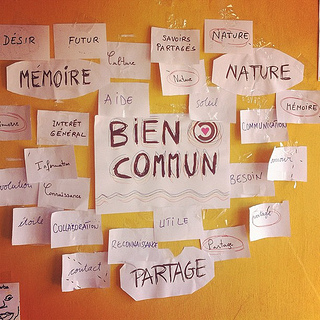 DÉSIR
FUTUR
Culture
SAVOIRS
PARTAGÉS
NATURE
MÉMOIRE
Nature
NATURE
AIDE
soleil
MÉMOIRE
INTÉRÊT
GÉNÉRAL
BIEN
COMMUN
COMMUNICATION
Information
Connaissance
BESOIN
école
COLLABORATION
UTILE
RECONNAISSANCE
Partage
contact
PARTAGE